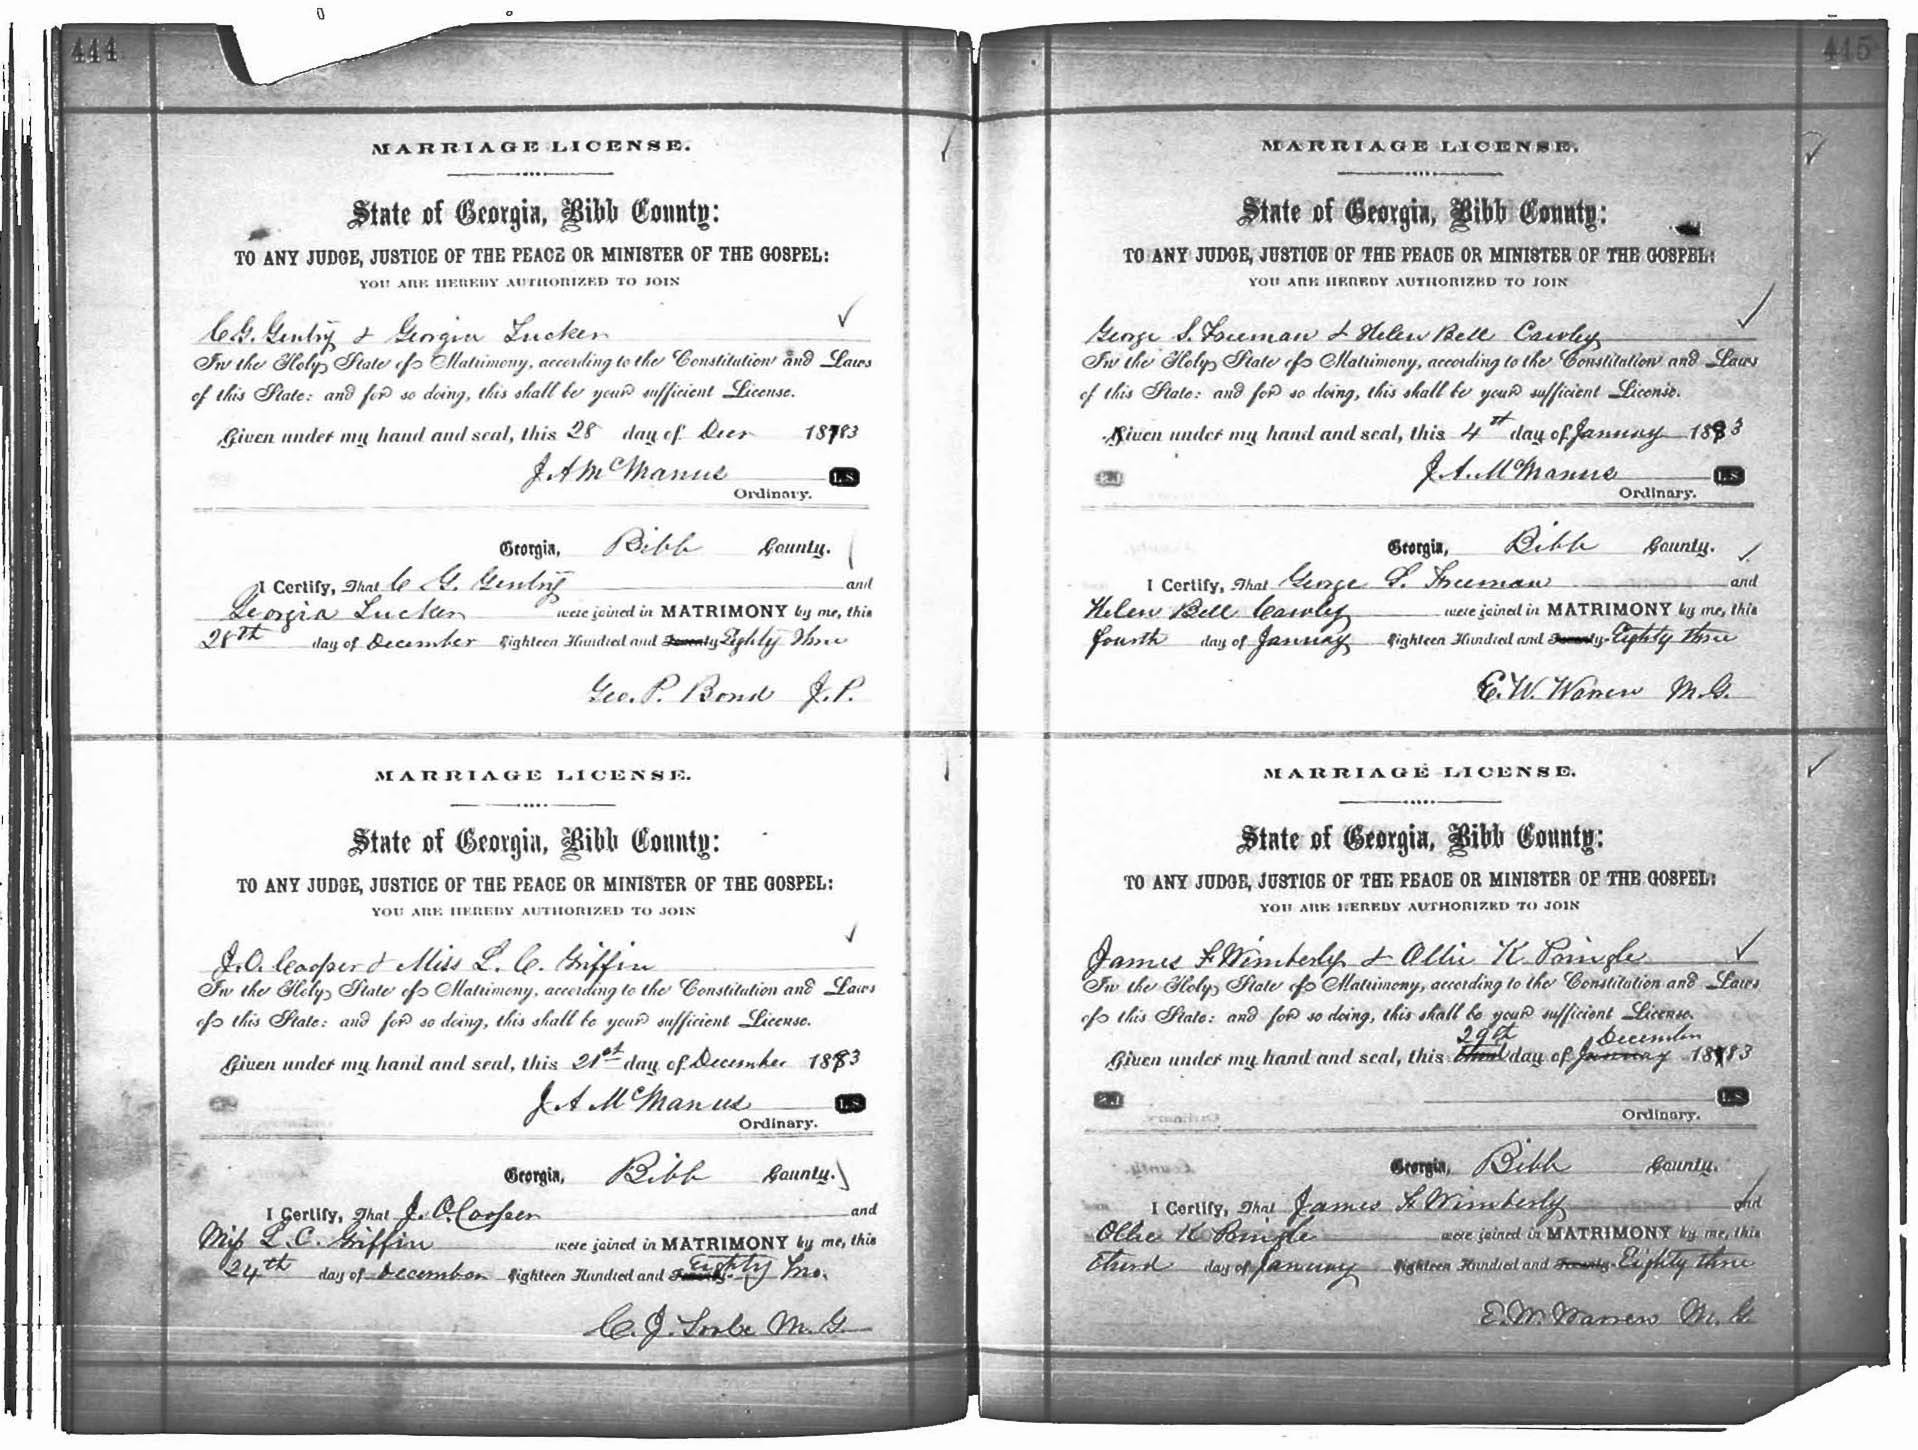 444
MARRIAGE LICENSE.
State of Georgia, Bibb County:
TO ANY JUDGE, JUSTICE OF THE PEACE OR MINISTER OF THE GOSPEL:
YOU ARE HEREBY AUTHORIZED TO JOIN
C. G. Gentry & Georgia Tucker
In the Holy State of Matrimony, according to the Constitution and Laws
of this State: and for so doing, this shall be your sufficient License.
Given under my hand and seal, this 28 day of Decr 1883
J A McManus L.S.
Ordinary.
Georgia, Bibb County.
I Certify, That C G. Gentry and
Georgia Tucker were joined in MATRIMONY by me, this
28th day of December Eighteen Hundred and Seventy Eighty Three
Geo. P. Bond J.P.
MARRIAGE LICENSE.
State of Georgia, Bibb County:
TO ANY JUDGE, JUSTICE OF THE PEACE OR MINISTER OF THE GOSPEL:
YOU ARE HEREBY AUTHORIZED TO JOIN
J. O. Cooper & Miss L. C. Griffin
In the Holy State of Matrimony, according to the Constitution and Laws
of this State: and for so doing, this shall be your sufficient License.
Given under my hand and seal, this 21st day of December 1883
J A McManus L.S.
Ordinary.
Georgia, Bibb County.
I Certify, That J. O. Cooper and
Miss L. C. Griffin were joined in MATRIMONY by me, this
24th day of December Eighteen Hundred and Seventy Eighty
C. J. M. G.
415
MARRIAGE LICENSE.
State of Georgia, Bibb County:
TO ANY JUDGE, JUSTICE OF THE PEACE OR MINISTER OF THE GOSPEL:
YOU ARE HEREBY AUTHORIZED TO JOIN
George S. Freeman & Helen Bell Cawley
In the Holy State of Matrimony, according to the Constitution and Laws
of this State: and for so doing, this shall be your sufficient License.
Given under my hand and seal, this 4th day of January 1883
J. A. McManus L.S.
Ordinary.
Georgia, Bibb County.
I Certify, That George S. Freeman and
Helen Bell Cawley were joined in MATRIMONY by me, this
fourth day of January Eighteen Hundred and Seventy-Eighty three
E. W. Warren M. G.
MARRIAGE LICENSE.
State of Georgia, Bibb County:
TO ANY JUDGE, JUSTICE OF THE PEACE OR MINISTER OF THE GOSPEL:
YOU ARE HEREBY AUTHORIZED TO JOIN
James F Wimberly & Ollie K Pringle
In the Holy State of Matrimony, according to the Constitution and Laws
of this State: and for so doing, this shall be your sufficient License.
29th December
Given under my hand and seal, this third day of January 1883
L.S.
Ordinary.
Georgia, Bibb County.
I Certify, That James F Wimberly and
Ollie K Pringle were joined in MATRIMONY by me, this
third day of January Eighteen Hundred and Seventy-Eighty three
E. W. Warren M. G.